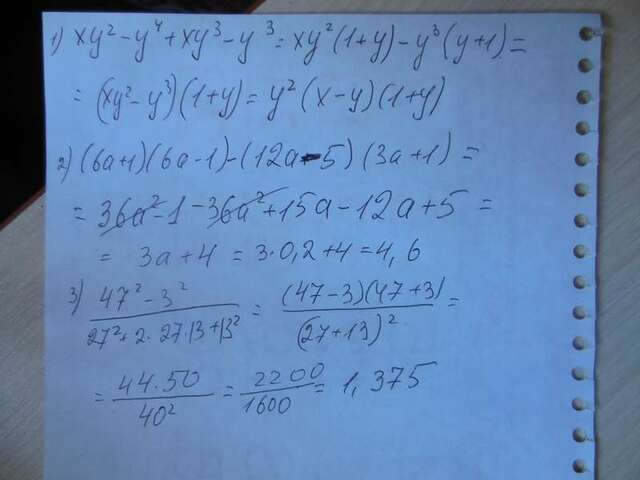 1) xy² - y⁴ + xy³ - y³ = xy²(1+y) - y³(y+1) =
= (xy² - y³)(1+y) = y²(x-y)(1+y)
2) (6a+1)(6a-1) - (12a-5)(3a+1) =
= 36a² - 1 - 36a² + 15a - 12a + 5 =
= 3a + 4 = 3·0,2 + 4 = 4,6
3) (47² - 3²)/(27² + 2·27·13 + 13²) = ((47-3)(47+3))/((27+13)²) =
= (44·50)/(40²) = 2200/1600 = 1,375